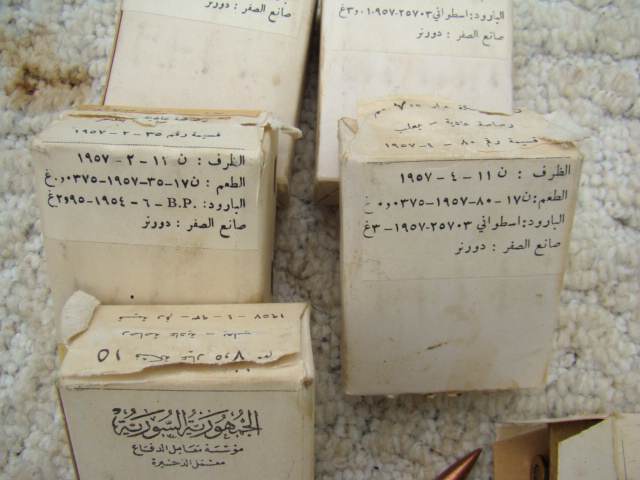 صانع الصفر : دورنر
البارود: اسطواني ٢٥٧٠٣-١٩٥٧-٣و٠غ
صانع الصفر : دورنر
قسيمة رقم ٣٥ - ٢ - ١٩٥٧
الظرف : ن ١١ - ٢ - ١٩٥٧
الطعم : ن١٧-٣٥-١٩٥٧-٣٧٥و٠غ
البارود: .B.P - ٦ - ١٩٥٤-٩٥و٢غ
صانع الصفر : دورنر
رصاصة عادية - بعلب
قسيمة رقم ٨٠ - ٤ - ١٩٥٧
الظرف : ن ١١ - ٤ - ١٩٥٧
الطعم: ن١٧-٨٠-١٩٥٧-٣٧٥و٠غ
البارود: اسطواني ٢٥٧٠٣-١٩٥٧-٣غ
صانع الصفر : دورنر
١٥
رصاصة عادية - بعلب
الجمهورية السورية
مؤسسة معامل الدفاع
معمل الذخيرة